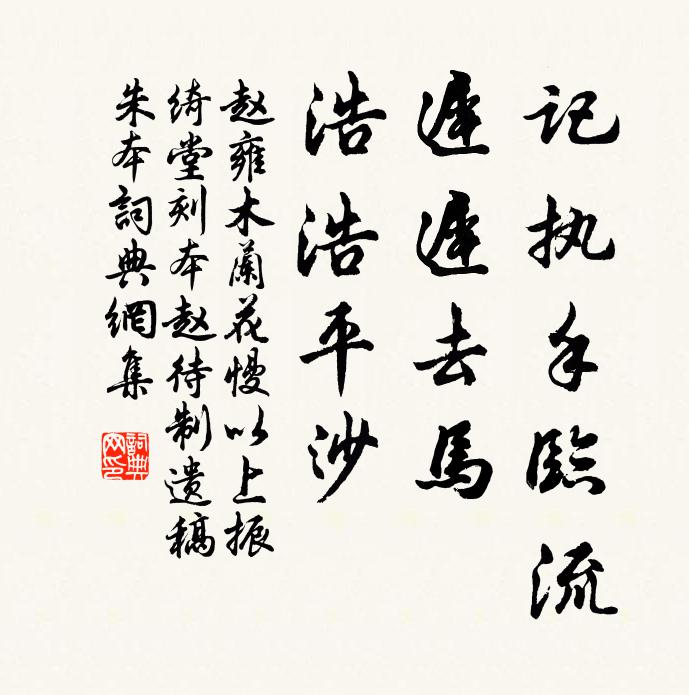 记执手臨流
遲遲去馬
浩浩平沙
赵雍木蘭花慢以上振
绮堂刻本赵待制遗稿
朱本詞典網集
詞典网印